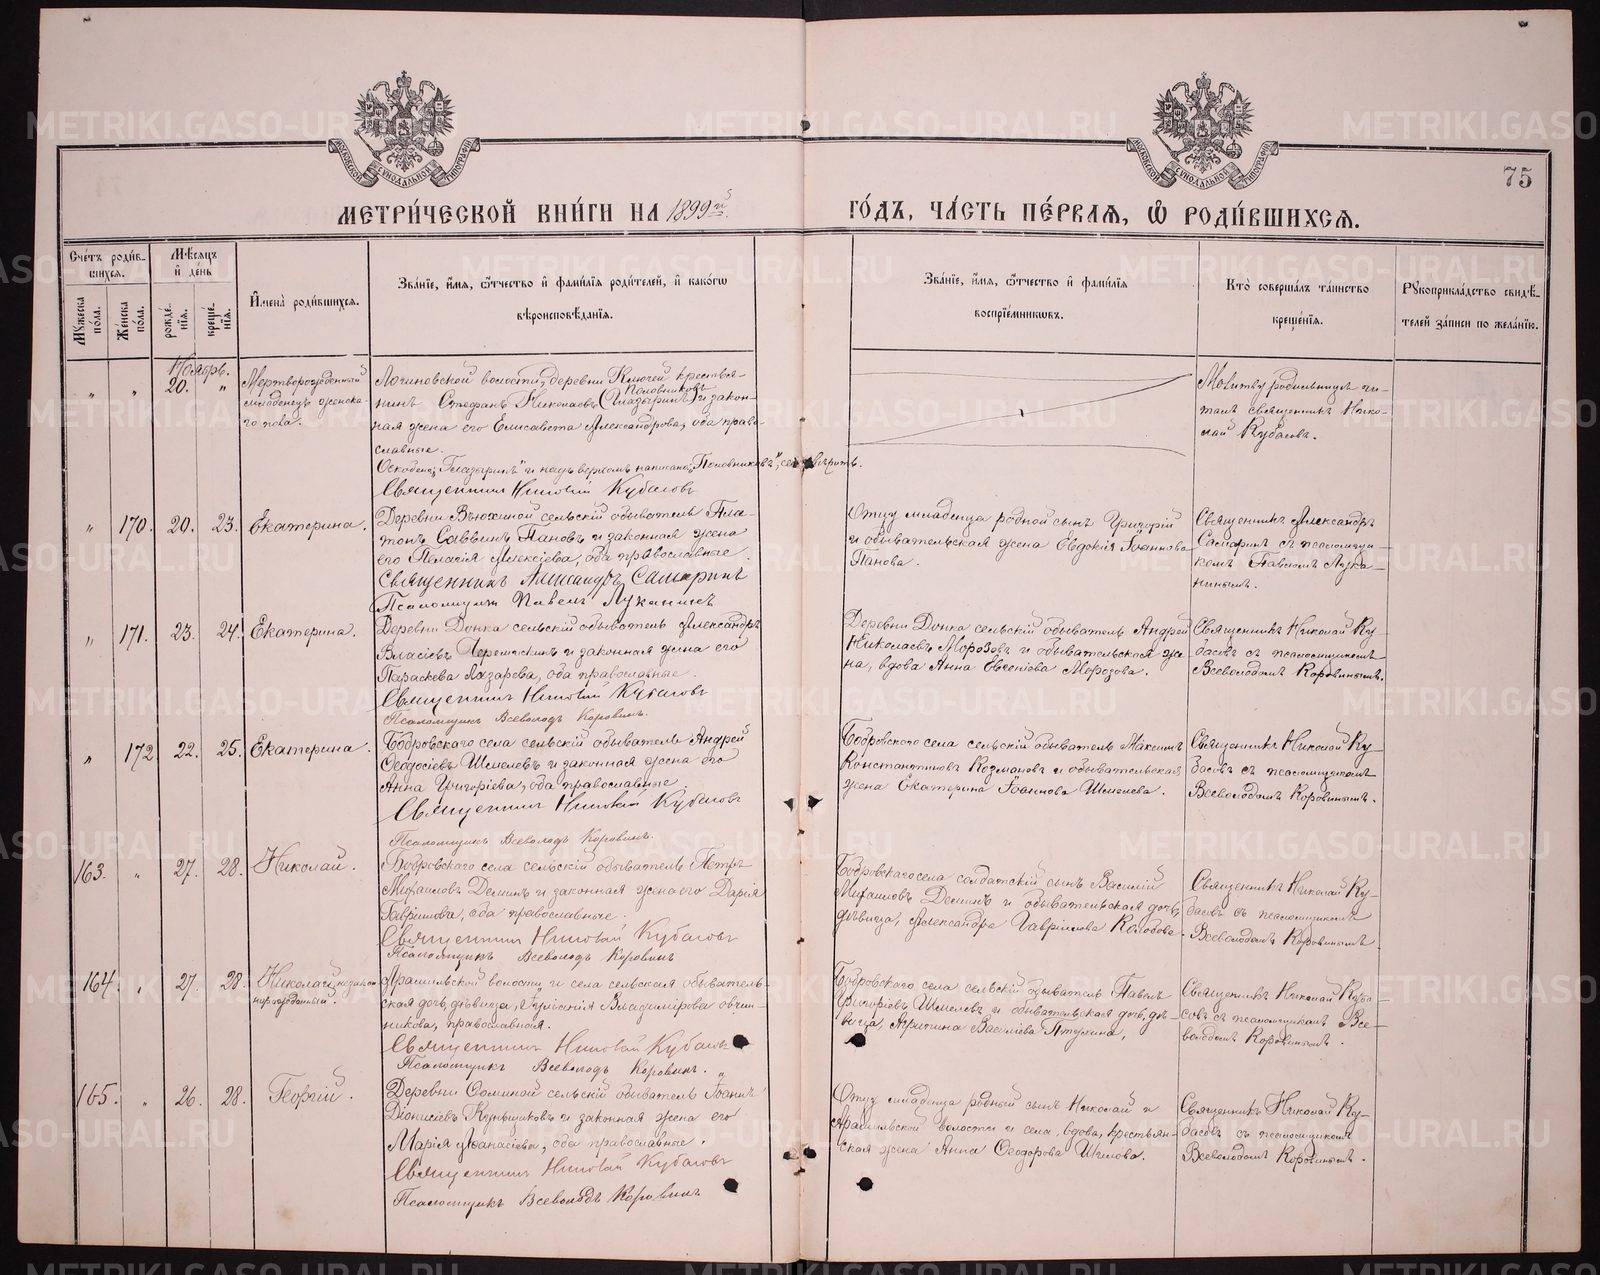 МОСКОВСКОЙ СѴНОДАЛЬНОЙ ТИПОГРАФІИ
МОСКОВСКОЙ СѴНОДАЛЬНОЙ ТИПОГРАФІИ
75
МЕТРИ́ЧЕСКОЙ КНИ́ГИ НА 1899й
ГО́ДЪ, ЧА́СТЬ ПЕ́РВАЯ, Ѡ҆ РОДИ́ВШИХСЯ.
Сче́тъ роди́в-
шихся.
Мꙋ́жеска по́ла.
Же́нска по́ла.
Мѣ́сяцъ и҆ де́нь
рожде́нїя.
креще́нїя.
И҆мена̀ роди́вшихся.
Зва́нїе, и҆́мя, ѻ҆́тчество и҆ фами́лїя роди́телей, и҆ како́гѡ
вѣроисповѣ́данїя.
Зва́нїе, и҆́мя, ѻ҆́тчество и҆ фами́лїя
воспрїе́мникѡвъ.
Кто̀ соверша́лъ та́инство
креще́нїя.
Рꙋкоприкла́дство свидѣ́-
телей за́писи по жела́нїю.
Ноябрь.
„ „ 20. „
Мертворожденный
младенецъ женска-
го пола.
Логиновской волости, деревни Ключей крестья-
Половниковъ
нинъ Стефанъ Николаевъ (Глазыринъ) и закон-
ная жена его Елисавета Александрова, оба право-
славные.
Оскоблено „Глазыринъ" и надъ верхомъ написано „Половниковъ",
Священникъ Николай Кубасовъ
Молитву родильницѣ чи-
талъ священникъ Нико-
лай Кубасовъ.
„ 170. 20. 23. Екатерина.
Деревни Вьюхиной сельскій обыватель Пла-
тонъ Саввинъ Пановъ и законная жена
его Пелагія Алексіева, оба православные.
Священникъ Александръ Самаринъ
Псаломщикъ Павелъ Луканинъ
Отцу младенца родной сынъ Григорій
и обывательская жена Евдокія Іоаннова
Панова.
Священникъ Александръ
Самаринъ съ псаломщи-
комъ Павломъ Лука-
нинымъ.
„ 171. 23. 24. Екатерина.
Деревни Донка сельскій обыватель Александръ
Власіевъ и законная жена его
Параскева Лазарева, оба православные.
Священникъ Николай Кубасовъ
Псаломщикъ Всеволодъ Коровинъ.
Деревни Донка сельскій обыватель Андрей
Николаевъ Морозовъ и обывательская же-
на, вдова Анна Евсевіева Морозова.
Священникъ Николай Ку-
басовъ съ псаломщикомъ
Всеволодомъ Коровинымъ.
„ 172. 22. 25. Екатерина.
Бобровскаго села сельскій обыватель Андрей
Ѳеодосіевъ Шмелевъ и законная жена его
Анна Григоріева, оба православные.
Священникъ Николай Кубасовъ
Псаломщикъ Всеволодъ Коровинъ.
Бобровскаго села сельскій обыватель Максимъ
Константиновъ Козмановъ и обывательская
жена Екатерина Іоаннова Шмелева.
Священникъ Николай Ку-
басовъ съ псаломщикомъ
Всеволодомъ Коровинымъ.
163. „ 27. 28. Николай.
Бобровскаго села сельскій обыватель Петръ
Михаиловъ Деминъ и законная жена его Дарія
Гавриилова, оба православные.
Священникъ Николай Кубасовъ
Псаломщикъ Всеволодъ Коровинъ
Бобровскаго села солдатскій сынъ Василій
Михаиловъ Деминъ и обывательская дочь,
дѣвица, Александра Гавріилова Колобова.
Священникъ Николай Ку-
басовъ съ псаломщикомъ
Всеволодомъ Коровинымъ.
164. „ 27. 28. Николай, незакон-
норожденный.
Арамильской волости и села сельская обыватель-
ская дочь, дѣвица, Владимірова Овчин-
никова, православная.
Священникъ Николай Кубасовъ
Псаломщикъ Всеволодъ Коровинъ.
Бобровскаго села сельскій обыватель Павелъ
Григоріевъ Шмелевъ и обывательская дочь, дѣ-
вица, Агрипина Василіева
Священникъ Николай Куба-
совъ съ псаломщикомъ Все-
володомъ Коровинымъ.
165. „ 26. 28. Георгій.
Деревни Ѳоминой сельскій обыватель Іоаннъ
Діонисіевъ Куньщиковъ и законная жена его
Марія Аѳанасіева, оба православные.
Священникъ Николай Кубасовъ
Псаломщикъ Всеволодъ Коровинъ
Отцу младенца родный сынъ Николай и
Арамильской волости и села, вдова, крестьян-
ская жена Анна Ѳеодорова Шилова.
Священникъ Николай Ку-
басовъ съ псаломщикомъ
Всеволодомъ Коровинымъ.
METRIKI.GASO-URAL.RU